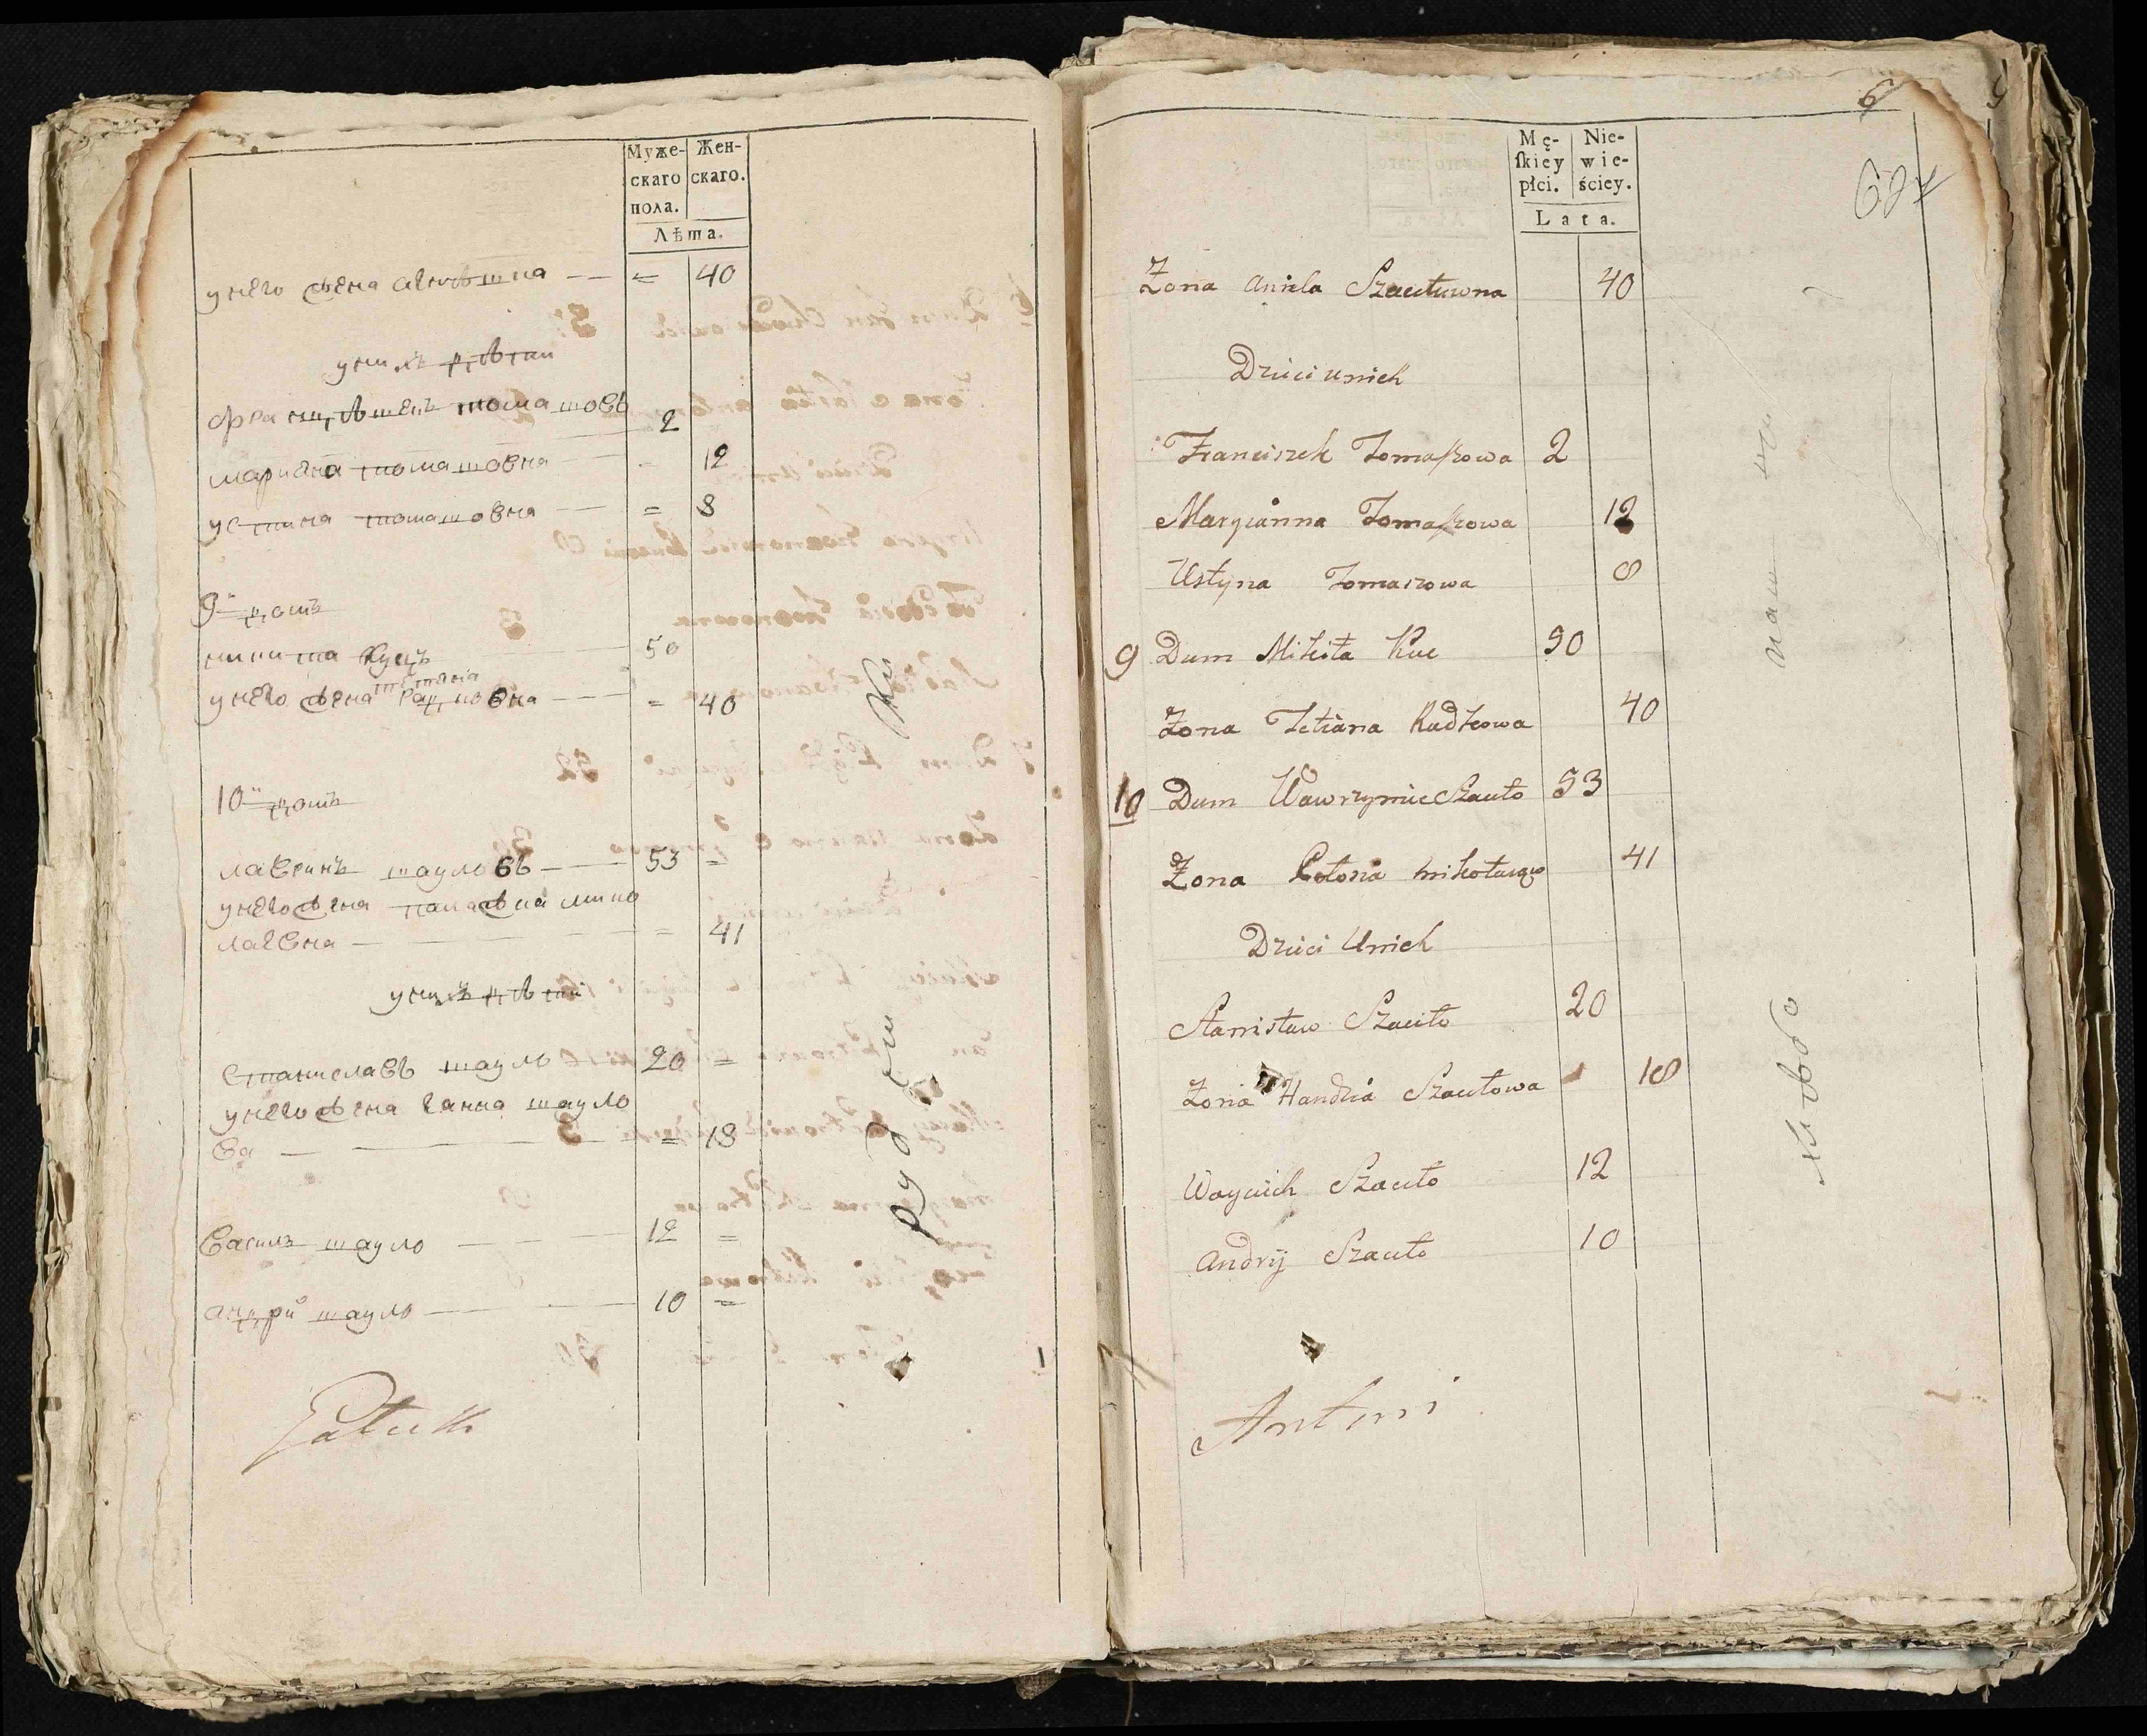 Муже-
скаго
пола.
Жен-
скаго.
Лѣта.
у него жена — = 40
у нихъ дѣти
томашовъ 2
мариана томашовна - 12
устина томашовна = 8
9й домъ
никита куцъ 50
тетяна
у него жена радковна = 40
10й домъ
лавринъ шауловъ 53 =
у него жена палажна мико
лаевна = 41
у нихъ дѣти
станиславъ шауло 20 =
у него жена ганна шауло
ва = 18
василъ шауло 12 =
андрй шауло 10 =
6
Mę-
ſkiey
płci.
Nie-
wie-
ściey.
Lata.
Żona Aniela Szaułuwna 40
Dzieci unich
Franciszek Tomaszowa 2
Maryianna Tomaszowa 12
Ustyna Tomaszowa 8
9 Dum Mikita Kuc 50
Żona Tetiana Radkowa 40
10 Dum Wawrzyniec Szauło 53
Żona Połonia 41
Dzieci Unich
Stanisław Szauło 20
Żona Handzia Szaułowa 18
Woyciech Szauło 12
Andrij Szauło 10
Antoni